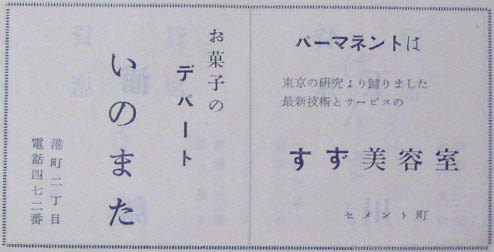 パーマネントは
東京の研究より歸りました
最新技術とサービスの
すず美容室
セメント町
お菓子の
デパート
いのまた
港町二丁目
電話四七二番